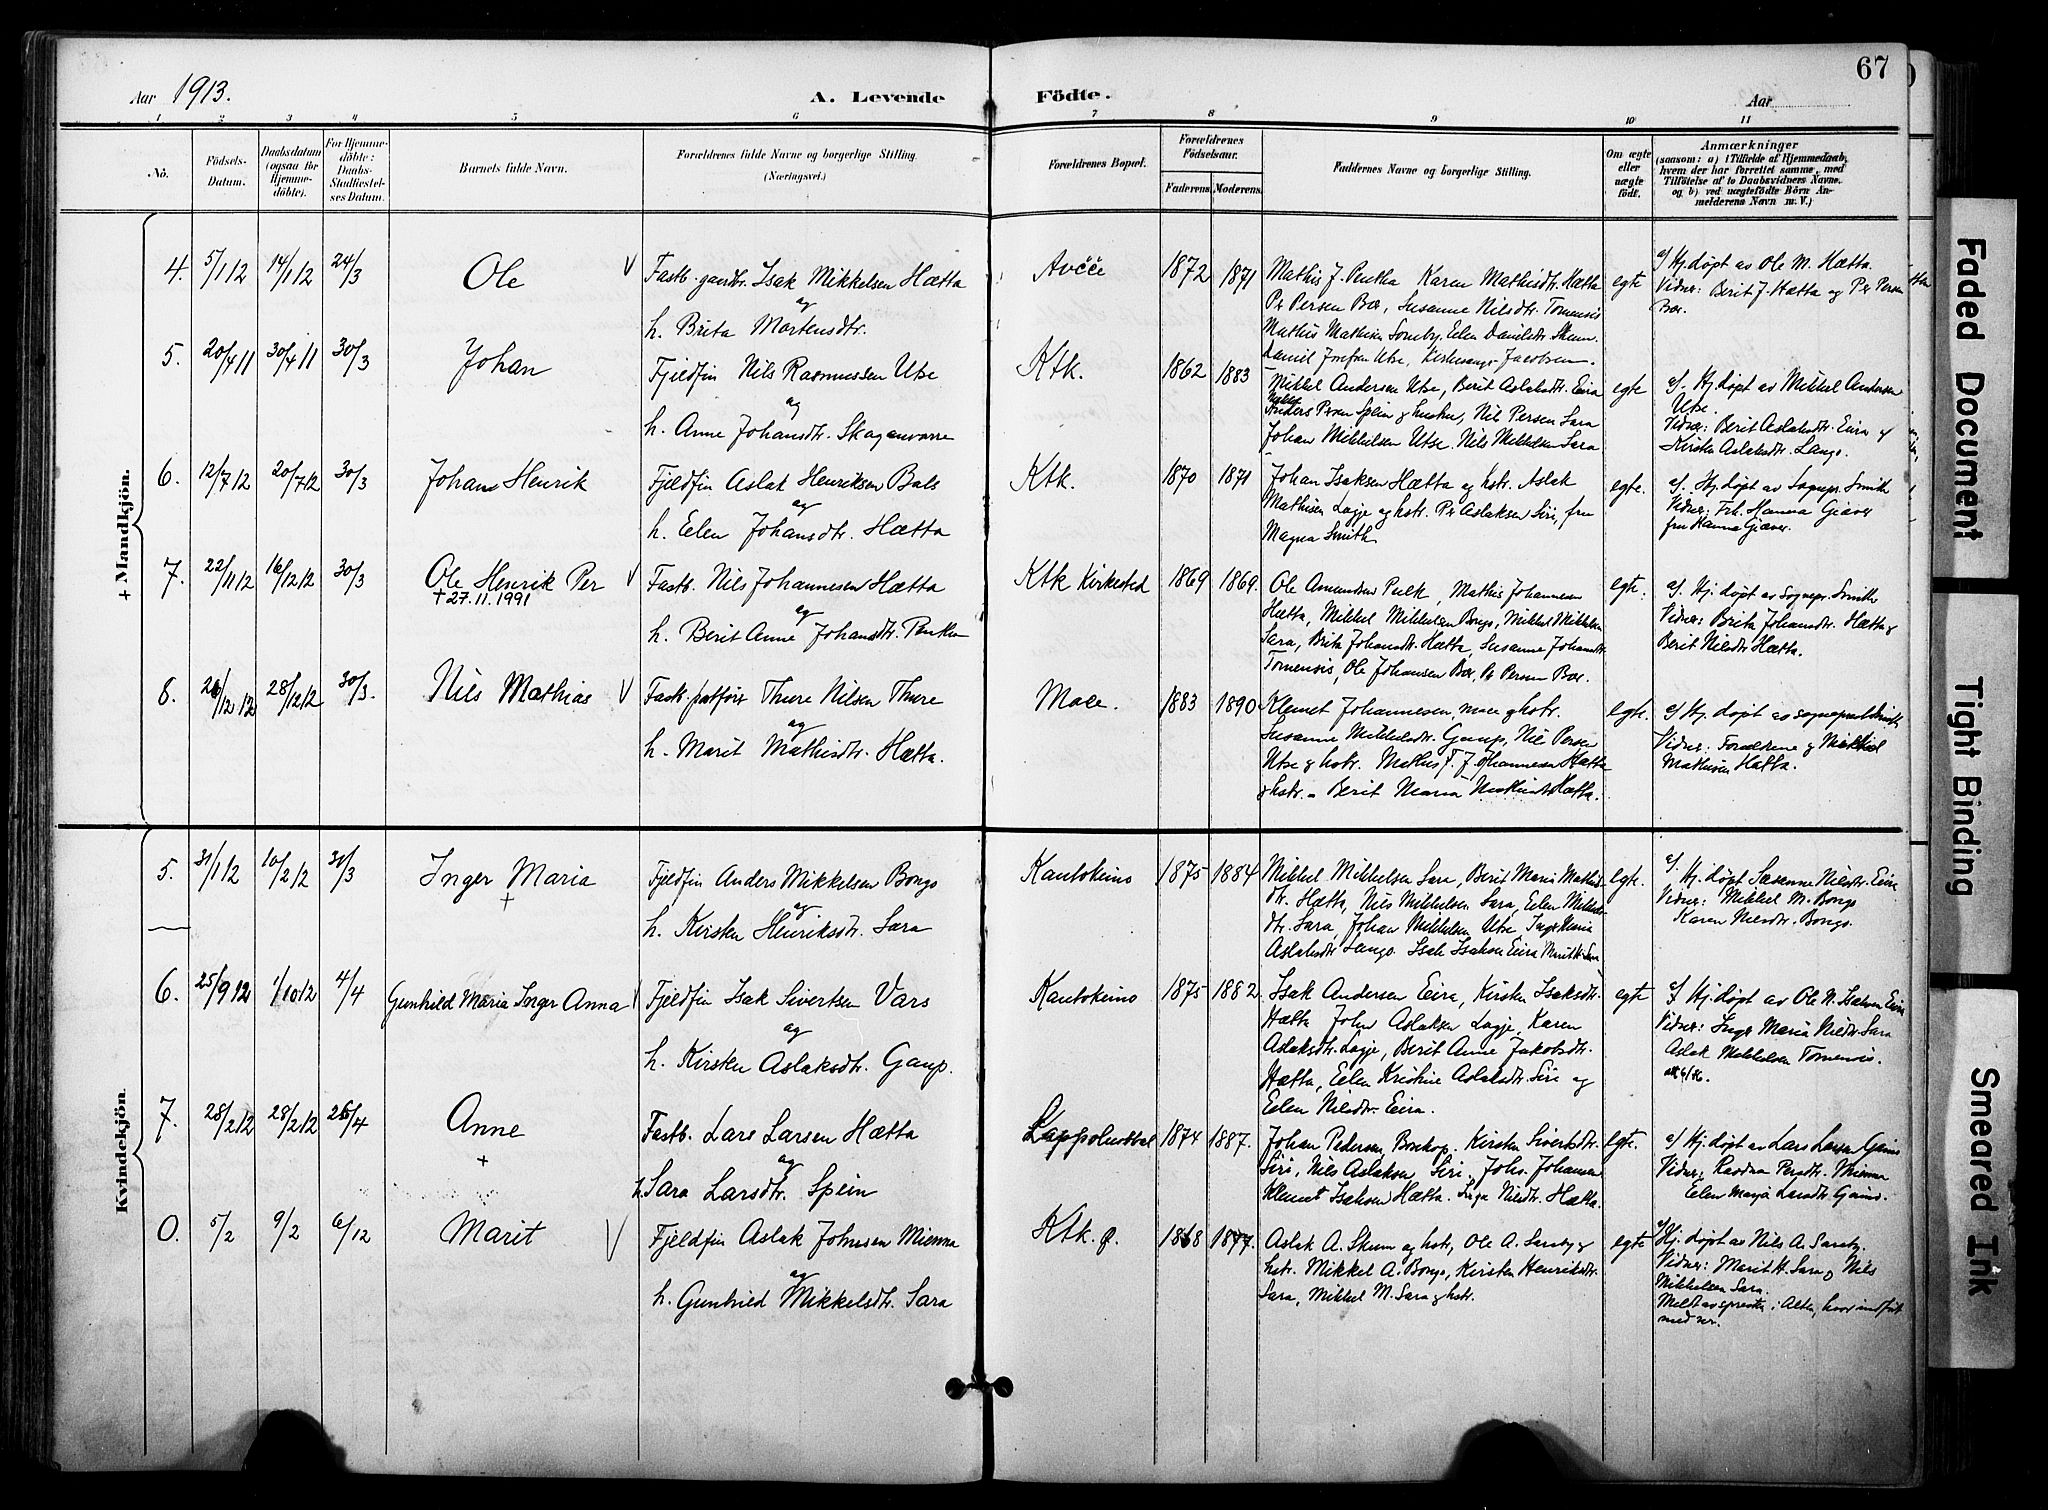 67
Aar 1913. A. Levende Födte. Aar
1 2 3 4 5 6 7 8 9 10 11
No. Födsels-Datum. Daabsdatum (ogsaa for Hjemmedöbte). For Hjemmedöbte: Daabs-Stadfæstelses Datum. Barnets fulde Navn. Forældrenes fulde Navne og borgerlige Stilling. (Næringsvei.) Forældrenes Bopæl. Forældrenes Födselsaar. Faderens. Moderens. Faddernes Navne og borgerlige Stilling. Om ægte eller uægte födt. Anmærkninger (saasom: a) i Tilfælde af Hjemmedaab, hvem der har forrettet samme, med Tilföielse af to Daabsvidners Navne, og b) ved uægtefödte Börn Anmelderens Navn m. V.)
+ Mandkjön.
4. 5/1 12 14/1 12 24/3 Ole V Fastb. gaardbr. Isak Mikkelsen Hætta
og
h. Brita Mortensdtr.
Avčče 1872 1871
Mathis J. Pentha Karen Mathisdtr. Hætta
Per Persen Bær, Susanne Nilsdtr. Tornensis
Mathis Mathisen Somby, Elen Danielsdtr. Skum.
Daniel Josefsen Utse, Kirkesanger Jacobsen.
egte
a/ Hj. døpt av Ole M. Hætta.
Vidner: Berit J. Hætta og Per Persen
Bær.
5. 20/4 11 30/4 11 30/3 Johan Fjeldfin Nils Rasmussen Utse
og
h. Anne Johansdtr. Skaganvarre
Ktk. 1862 1883
Mikkel Andersen Utse, Berit Aslaksdtr. Eira
Anders Persen Spein og hustru, Nil Persen Sara
Johan Mikkelsen Utse. Nils Mikkelsen Sara
egte
a/. Hj. døpt av Mikkel Andersen
Utse.
Vidner: Berit Aslaksdtr. Eira og
Kirsten Aslaksdtr. Lango.
6. 12/7 12 20/7 12 30/3 Johan Henrik Fjeldfin Aslak Henriksen Bals
og
h. Elen Johansdtr. Hætta
Ktk. 1870 1871
Johan Isaksen Hætta og hstr. Aslak
Mathisen Logje og hstr. Per Aslaksen Siri, fru
Magna Smith
egte.
a/. Hj. døpt av Sognepr. Smith
Vidner: Frk. Hanna Giæver
fru Hanna Giæver.
7. 22/11 12 16/12 12 30/3 Ole Henrik Per V Fastb. Nils Johannesen Hætta
+ 27.11.1991 og
h. Berit Anne Johansdtr. Penthа
Ktk Kirkested 1869 1869.
Ole Amundsen Pulk, Mathis Johannesen
Hætta, Mikkel Mikkelsen Bongo, Mikkel Mikkelsen
Sara, Brita Johansdtr. Hætta, Susanne Johansdtr.
Tornensis, Ole Johansen Bær, Per Persen Bær.
egte.
a/. Hj. døpt av Sognepr. Smith
Vidner: Brita Johansdtr. Hætta og
Berit Nilsdtr. Hætta.
8. 26/12 12 28/12 12 30/3. Nils Mathias V Fastb. postfører Thure Nilsen Thure
og
h. Marit Mathisdtr. Hætta.
Mace. 1883 1890
Klemet Johannesen, mace og hstr.
Susanne Mikkelsdtr. Gaup, Nil Persen
Utse og hstr. Mathis F. Johannesen Hætta
og hstr. – Berit Maria Mathisdtr Hætta.
egte.
a/ Hj. døpt av sogneprest Smith
Vidner: Forældrene og Mikkel
Mathisen Hætta.
Kvindekjön.
5. 31/1 12 10/2 12 31/3 Inger Maria Fjeldfin Anders Mikkelsen Bongo
+ og
h. Kirsten Henriksdtr. Sara
Kautokeino 1875 1884
Mikkel Mikkelsen Sara, Berit Maria Mathis-
dtr. Hætta, Nils Mikkelsen Sara, Elen Mikkels-
dtr. Sara, Johan Mikkelsen Utse, Inger Maria
Aslaksdtr Lango. Isak Isaksen Eira Marit H. Sara
egte.
a/.
Hj. døpt Susanne Nilsdtr. Eira
Vidner: Mikkel M. Bongo
Karen Nilsdtr. Bongo.
6. 25/9 12 1/10 12 4/4 Gunhild Maria Inger Anna V Fjeldfin Isak Sivertsen Vars
og
h. Kirsten Aslaksdtr. Gaup.
Kautokeino 1875 1882.
Isak Andersen Eira, Kirsten Isaksdtr.
Hætta John Aslaksen Logje, Karen
Aslaksdtr. Logje, Berit Anne Jakobsdtr.
Hætta, Elen Kristine Aslaksdtr. Siri og
Elen Nilsdtr. Eira.
egte
a/ Hj. døpt av Ole N. Isaksen Eira
Vidner: Inger Maria Nilsdtr. Sara
Aslak Mikkelsen Tornensis.
7. 28/2 12 28/2 12 26/4 Anne Fastb. Lars Larsen Hætta
+ og
h. Sara Larsdtr. Spein
Lappoluobbal 1874 1887.
Johan Pedersen Bosekop. Kirsten Sivertsdtr.
Siri, Nils Aslaksen Siri. Johs. Johansen
Klemet Isaksen Hætta. Inga Nilsdtr. Hætta.
egte.
a/ Hj. døpt av Lars Larsen Gaino
Vidner: Rasdna Persdtr. Mienna
Elen Marja Larsdtr. Gaino.
0. 5/2 9/2 6/12 Marit V Fjeldfin Aslak Johnsen Mienna
og
h. Gunhild Mikkelsdtr. Sara
Ktk. p. 1868 1877.
Aslak A. Skum og hstr, Ole A. Sareby og
hstr. Mikkel A. Bongo, Kirsten Henriksdtr.
Sara, Mikkel M. Sara og hstr.
egte
a/ Hj. døpt av Nils A. Sareby.
Vidner: Marit H. Sara og Nils
Mikkelsen Sara.
Meldt av spresten i Alten, hvor indført
med nr.
Faded Document
Tight Binding
Smeared Ink